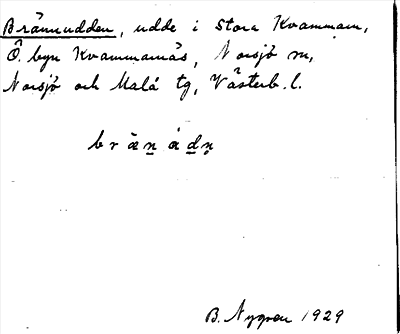 Brännudden, udde i Stora Kvammarn,
Ö. byn Kvammarnäs, Norsjö sn,
Norsjö och Malå tg, Västerb. l.
b r ä n å d n
B. Nygren 1929